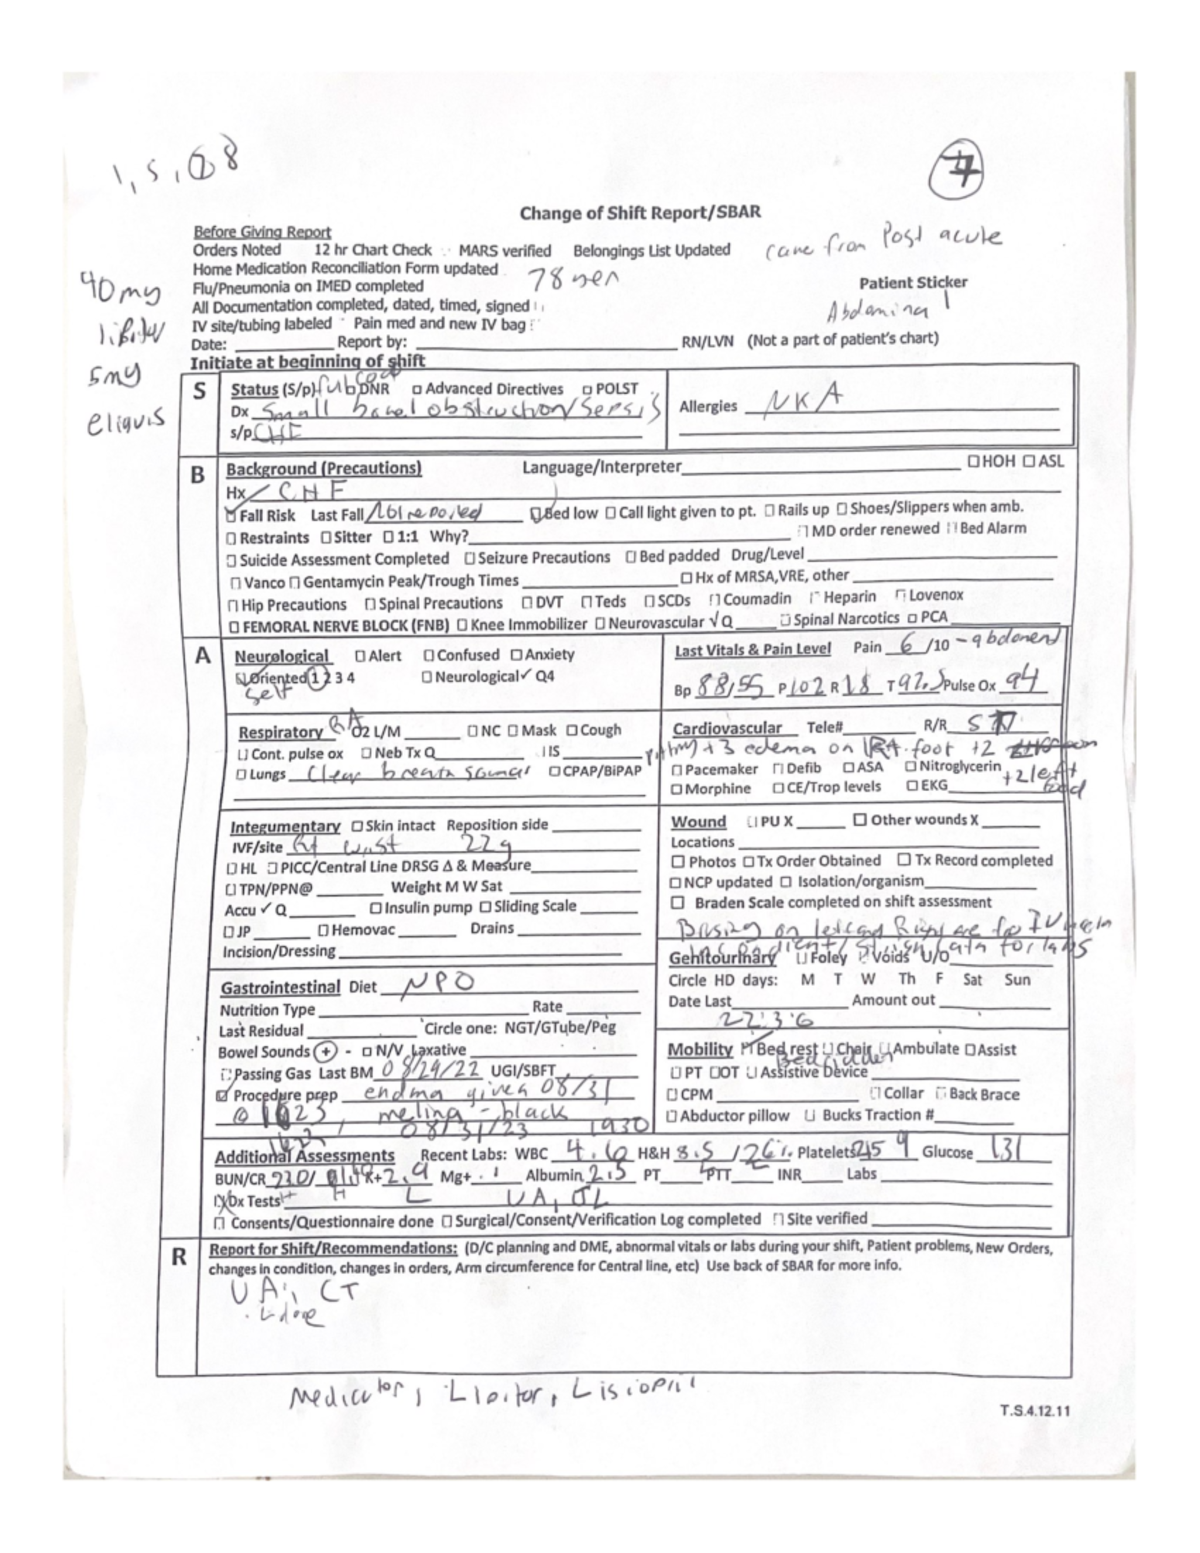 1, 5,
Change of Shift Report/SBAR
Before Giving Report
Orders Noted 12 hr Chart Check MARS verified Belongings List Updated came from Post acute
Home Medication Reconciliation Form updated
78 year
Flu/Pneumonia on IMED completed Patient Sticker
40 mg
All Documentation completed, dated, timed, signed Abdominal
IV site/tubing labeled Pain med and new IV bag
Date: Report by: RN/LVN (Not a part of patient's chart)
Initiate at beginning of shift
5mg
eliquis
S Status (S/p) full code DNR ☐ Advanced Directives ☐ POLST
Dx Small bowel obstruction/Sepsis Allergies NKA
s/p CHF
B Background (Precautions) Language/Interpreter ☐ HOH ☐ ASL
Hx CHF
☑ Fall Risk Last Fall Not reported Bed low ☐ Call light given to pt. ☐ Rails up ☐ Shoes/Slippers when amb.
☐ Restraints ☐ Sitter ☐ 1:1 Why? MD order renewed Bed Alarm
☐ Suicide Assessment Completed ☐ Seizure Precautions ☐ Bed padded Drug/Level
☐ Vanco ☐ Gentamycin Peak/Trough Times ☐ Hx of MRSA,VRE, other
☐ Hip Precautions ☐ Spinal Precautions ☐ DVT ☐ Teds ☐ SCDs ☐ Coumadin Heparin Lovenox
☐ FEMORAL NERVE BLOCK (FNB) ☐ Knee Immobilizer ☐ Neurovascular √Q ☐ Spinal Narcotics ☐ PCA
A Neurological ☐ Alert ☐ Confused ☐ Anxiety
☑ Oriented 1 2 3 4 ☐ Neurological✓ Q4
Self
Last Vitals & Pain Level Pain 6 /10 - abdomen
Bp 88/55 P 102 R 18 T 97.5 Pulse Ox 94
Respiratory RA O2 L/M ☐ NC ☐ Mask ☐ Cough
☐ Cont. pulse ox ☐ Neb Tx Q IS
☐ Lungs Clear breath sounds ☐ CPAP/BiPAP
Cardiovascular Tele# R/R
+3 edema on foot +2
☐ Pacemaker ☐ Defib ☐ ASA ☐ Nitroglycerin +2 left
☐ Morphine ☐ CE/Trop levels ☐ EKG foot
Integumentary ☐ Skin intact Reposition side
IVF/site Rt wrist 22g
☐ HL ☐ PICC/Central Line DRSG Δ & Measure
☐ TPN/PPN@ Weight M W Sat
Accu ✓ Q ☐ Insulin pump ☐ Sliding Scale
☐ JP ☐ Hemovac Drains
Incision/Dressing
Wound ☐ PU X ☐ Other wounds X
Locations
☐ Photos ☐ Tx Order Obtained ☐ Tx Record completed
☐ NCP updated ☐ Isolation/organism
☐ Braden Scale completed on shift assessment
on left and Right for IV
for labs
Genitourinary ☐ Foley Voids U/O
Circle HD days: M T W Th F Sat Sun
Date Last Amount out
22:36
Gastrointestinal Diet NPO
Nutrition Type Rate
Last Residual Circle one: NGT/GTube/Peg
Bowel Sounds + - ☐ N/V Laxative
☐ Passing Gas Last BM 08/29/22 UGI/SBFT
☑ Procedure prep endma given 08/31
@ 1623, melina - black
1623, 08/31/23 1930
Mobility Bed rest ☐ Chair ☐ Ambulate ☐ Assist
Bedridden
☐ PT ☐ OT ☐ Assistive Device
☐ CPM ☐ Collar ☐ Back Brace
☐ Abductor pillow ☐ Bucks Traction #
Additional Assessments Recent Labs: WBC 4.6 H&H 8.5 /26%. Platelets 259 Glucose 131
BUN/CR K+ 2.9 Mg+ Albumin 2.5 PT PTT INR Labs
H L
Dx Tests UA,
☐ Consents/Questionnaire done ☐ Surgical/Consent/Verification Log completed ☐ Site verified
R Report for Shift/Recommendations: (D/C planning and DME, abnormal vitals or labs during your shift, Patient problems, New Orders,
changes in condition, changes in orders, Arm circumference for Central line, etc) Use back of SBAR for more info.
UA, CT
Lipitor,
T.S.4.12.11